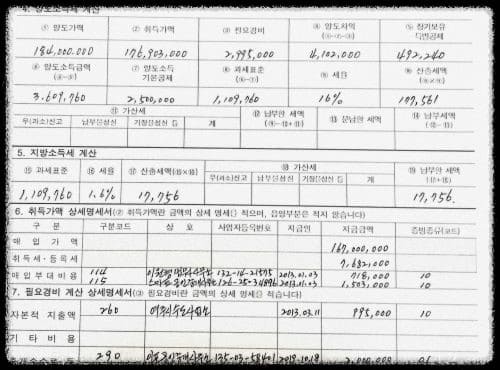 4. 양도소득세 계산
① 양도가액 ② 취득가액 ③ 필요경비 ④ 양도차익 (①-②-③) ⑤ 장기보유특별공제
184,000,000 176,903,000 2,995,000 4,102,000 492,240
⑥ 양도소득금액 (④-⑤) ⑦ 양도소득 기본공제 ⑧ 과세표준 (⑥-⑦) ⑨ 세율 ⑩ 산출세액 (⑧×⑨)
3,609,760 2,500,000 1,109,760 16% 177,561
⑪ 가산세 ⑫ 납부할 세액 (⑩-⑪+⑪) ⑬ 분납할 세액 ⑭ 납부세액
무(과소)신고 납부불성실 기장불성실 등 계
5. 지방소득세 계산
⑮ 과세표준 ⑯ 세율 ⑰ 산출세액(⑮×⑯) ⑱ 가산세 ⑲ 납부할 세액 (⑰+⑱)
무(과소)신고 납부불성실 기장불성실 등 계
1,109,760 1.6% 17,756 17,756
6. 취득가액 상세명세서(② 취득가액란 금액의 상세 명세를 적으며, 음영부분은 적지 않습니다)
구 분 구분코드 상 호 사업자등록번호 지급일 지급금액 증빙종류(코드)
매 입 가 액 167,000,000
취득세·등록세 7,682,000
매입부대비용 114 132-14-21575 2013.01.03 718,000 10
115 126-25-34896 2013.01.03 1,503,000 10
7. 필요경비 계산 상세명세서(③ 필요경비란 금액의 상세 명세를 적습니다)
자본적 지출액 260 2013.03.11 995,000 10
기 타 비 용
290 135-03-58401 2,000,000